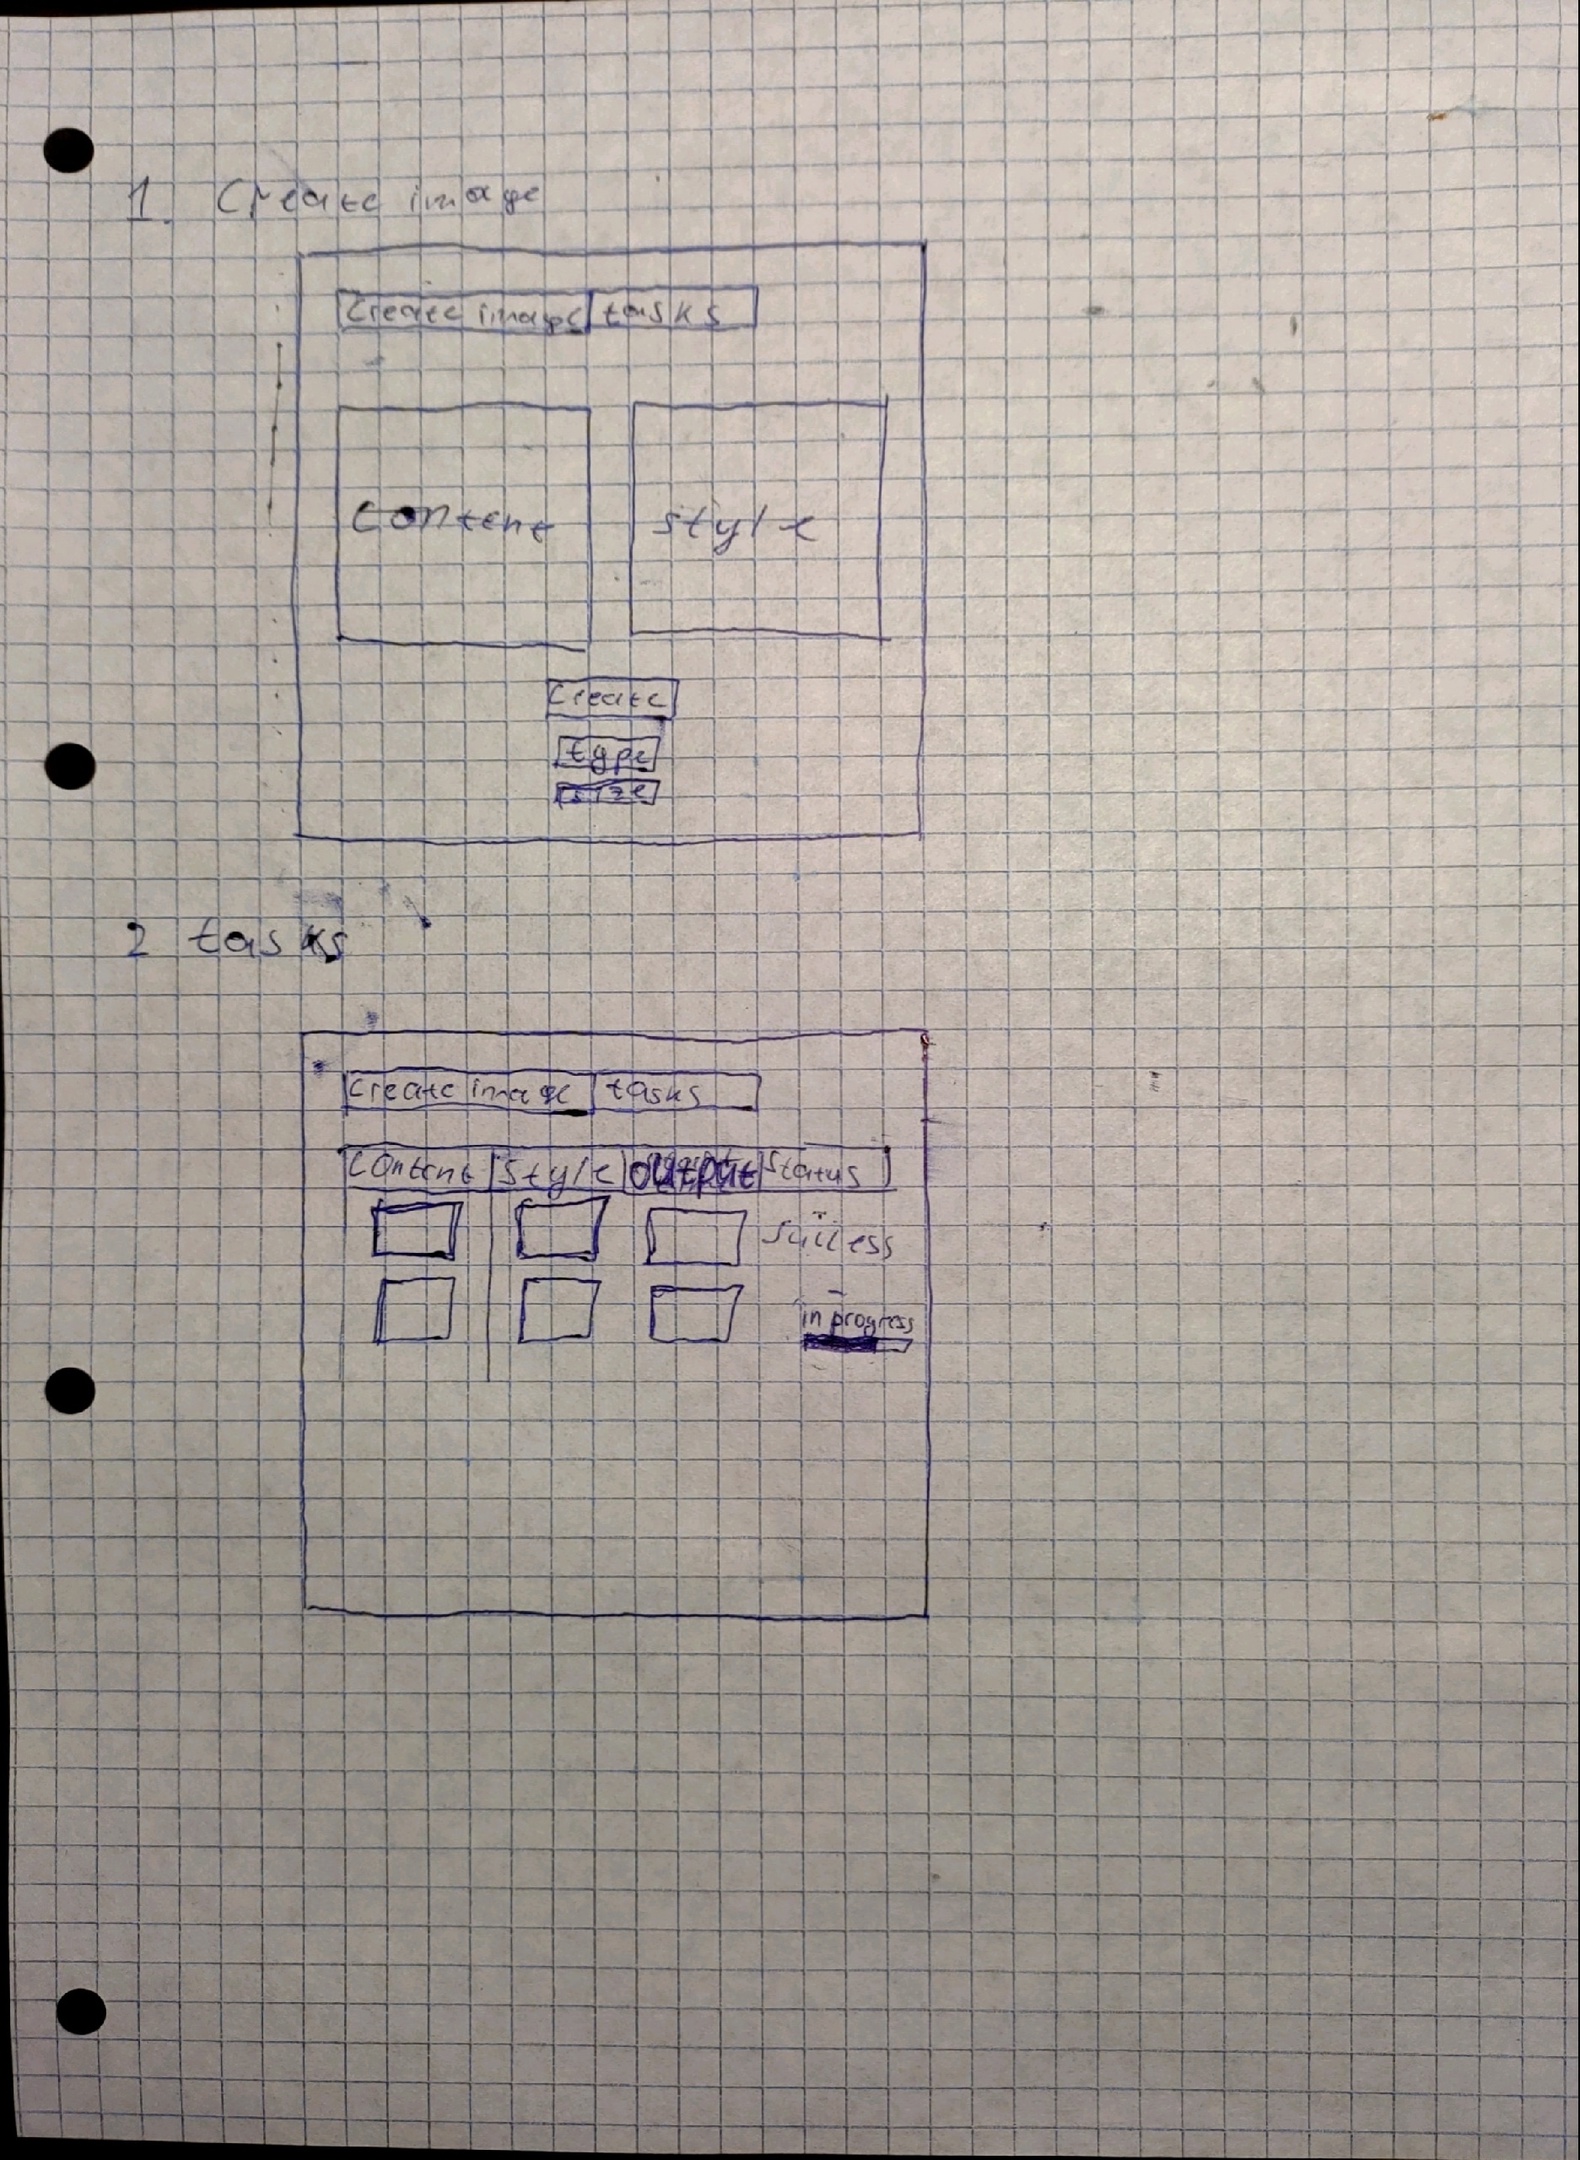 1. Create image
Create image tasks
Content style
Create
type
size
2 tasks
Create image tasks
Content style output status
success
in progress